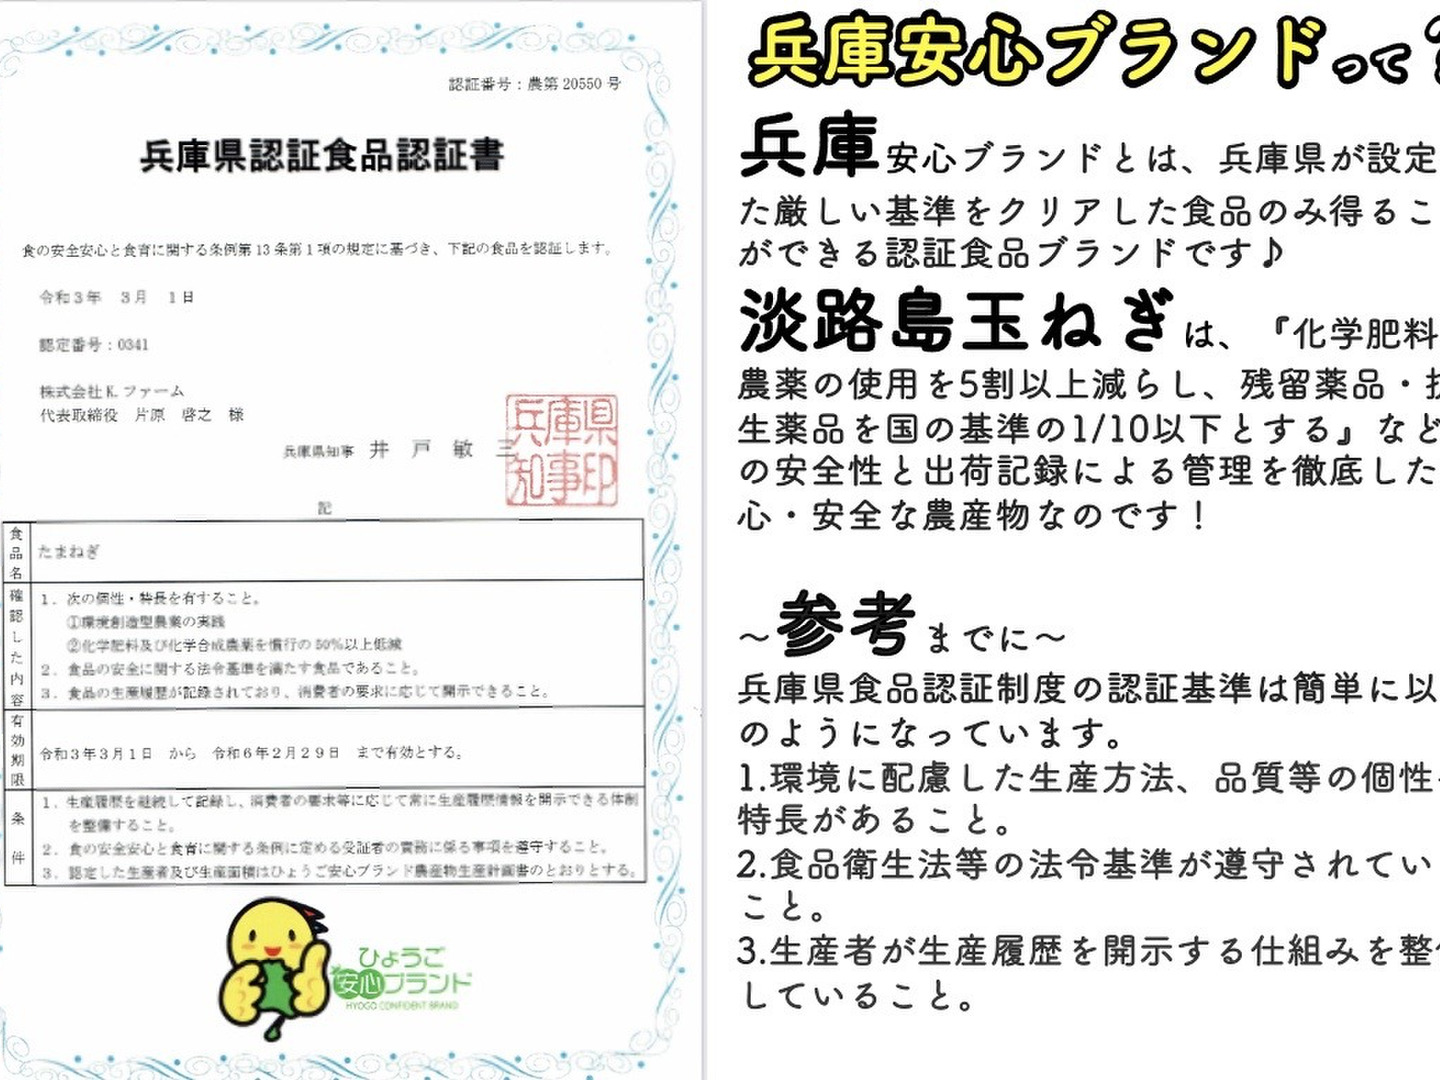 認証番号：農第 20550 号
兵庫県認証食品認証書
食の安全安心と食育に関する条例第 13 条第 1 項の規定に基づき、下記の食品を認証します。
令和３年　３月　１日
認定番号：0341
株式会社 K. ファーム
代表取締役　片原　啓之　様
兵庫県知事　井　戸　敏　三
兵庫県知事印
記
食品名
たまねぎ
確認した内容
１．次の個性・特長を有すること。
①環境創造型農業の実践
②化学肥料及び化学合成農薬を慣行の 50％以上低減
２．食品の安全に関する法令基準を満たす食品であること。
３．食品の生産履歴が記録されており、消費者の要求に応じて開示できること。
有効期限
令和３年３月１日　から　令和６年２月２９日　まで有効とする。
条件
１．生産履歴を継続して記録し、消費者の要求等に応じて常に生産履歴情報を開示できる体制
を整備すること。
２．食の安全安心と食育に関する条例に定める受証者の責務に係る事項を遵守すること。
３．認定した生産者及び生産面積はひょうご安心ブランド農産物生産計画書のとおりとする。
ひょうご
安心ブランド
HYOGO CONFIDENT BRAND
兵庫安心ブランドって？
兵庫安心ブランドとは、兵庫県が設定
た厳しい基準をクリアした食品のみ得るこ
ができる認証食品ブランドです♪
淡路島玉ねぎは、『化学肥料
農薬の使用を5割以上減らし、残留薬品・
生薬品を国の基準の1/10以下とする』など
の安全性と出荷記録による管理を徹底した
心・安全な農産物なのです！
～参考までに～
兵庫県食品認証制度の認証基準は簡単に以
のようになっています。
1.環境に配慮した生産方法、品質等の個性
特長があること。
2.食品衛生法等の法令基準が遵守されてい
こと。
3.生産者が生産履歴を開示する仕組みを整
していること。